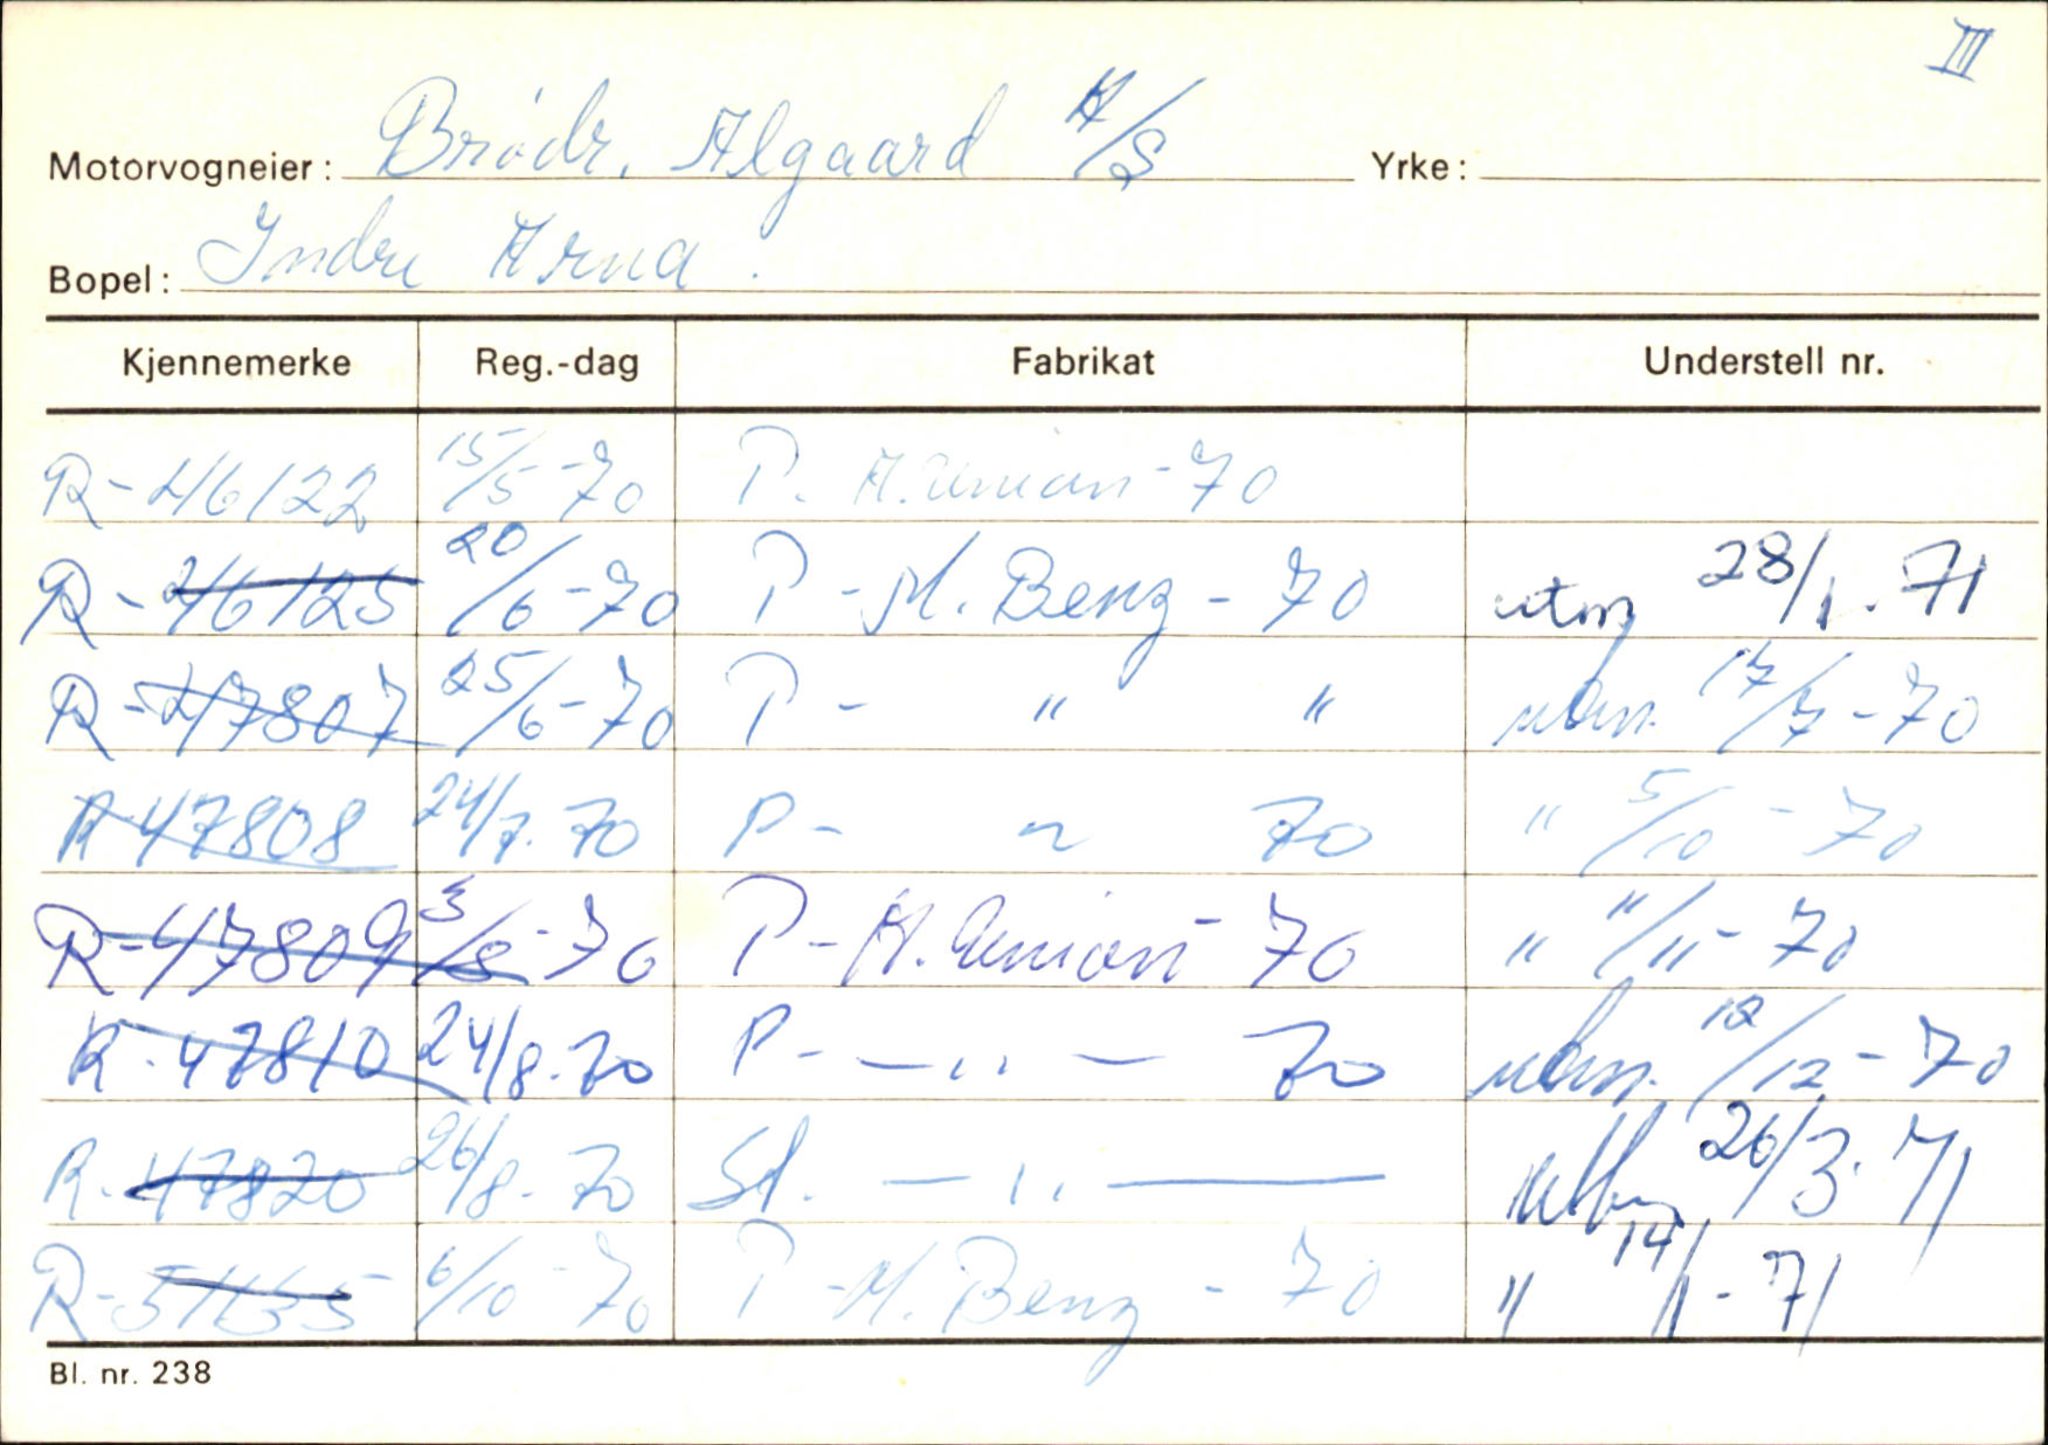 III
Motorvogneier: Brødr. Algaard A/S Yrke:
Bopel: Indre Arna.
Kjennemerke Reg.-dag Fabrikat Understell nr.
R-46122 15/5-70 P. A. Union-70
R-46125 20/6-70 P-M. Benz-70 28/1.71
R-47807 25/6-70 P- " " 17/7-70
R-47808 24/7.70 P- " 70 " 5/10-70
R-47809 3/8-70 P-A. Union-70 " "/11-70
R-47810 24/8.70 P- —"— 70 12/12-70
R.47820 26/8.70 St. —"— 26/3.71
R-51655 6/10-70 P-M. Benz-70 " 14/1-71
Bl. nr. 238